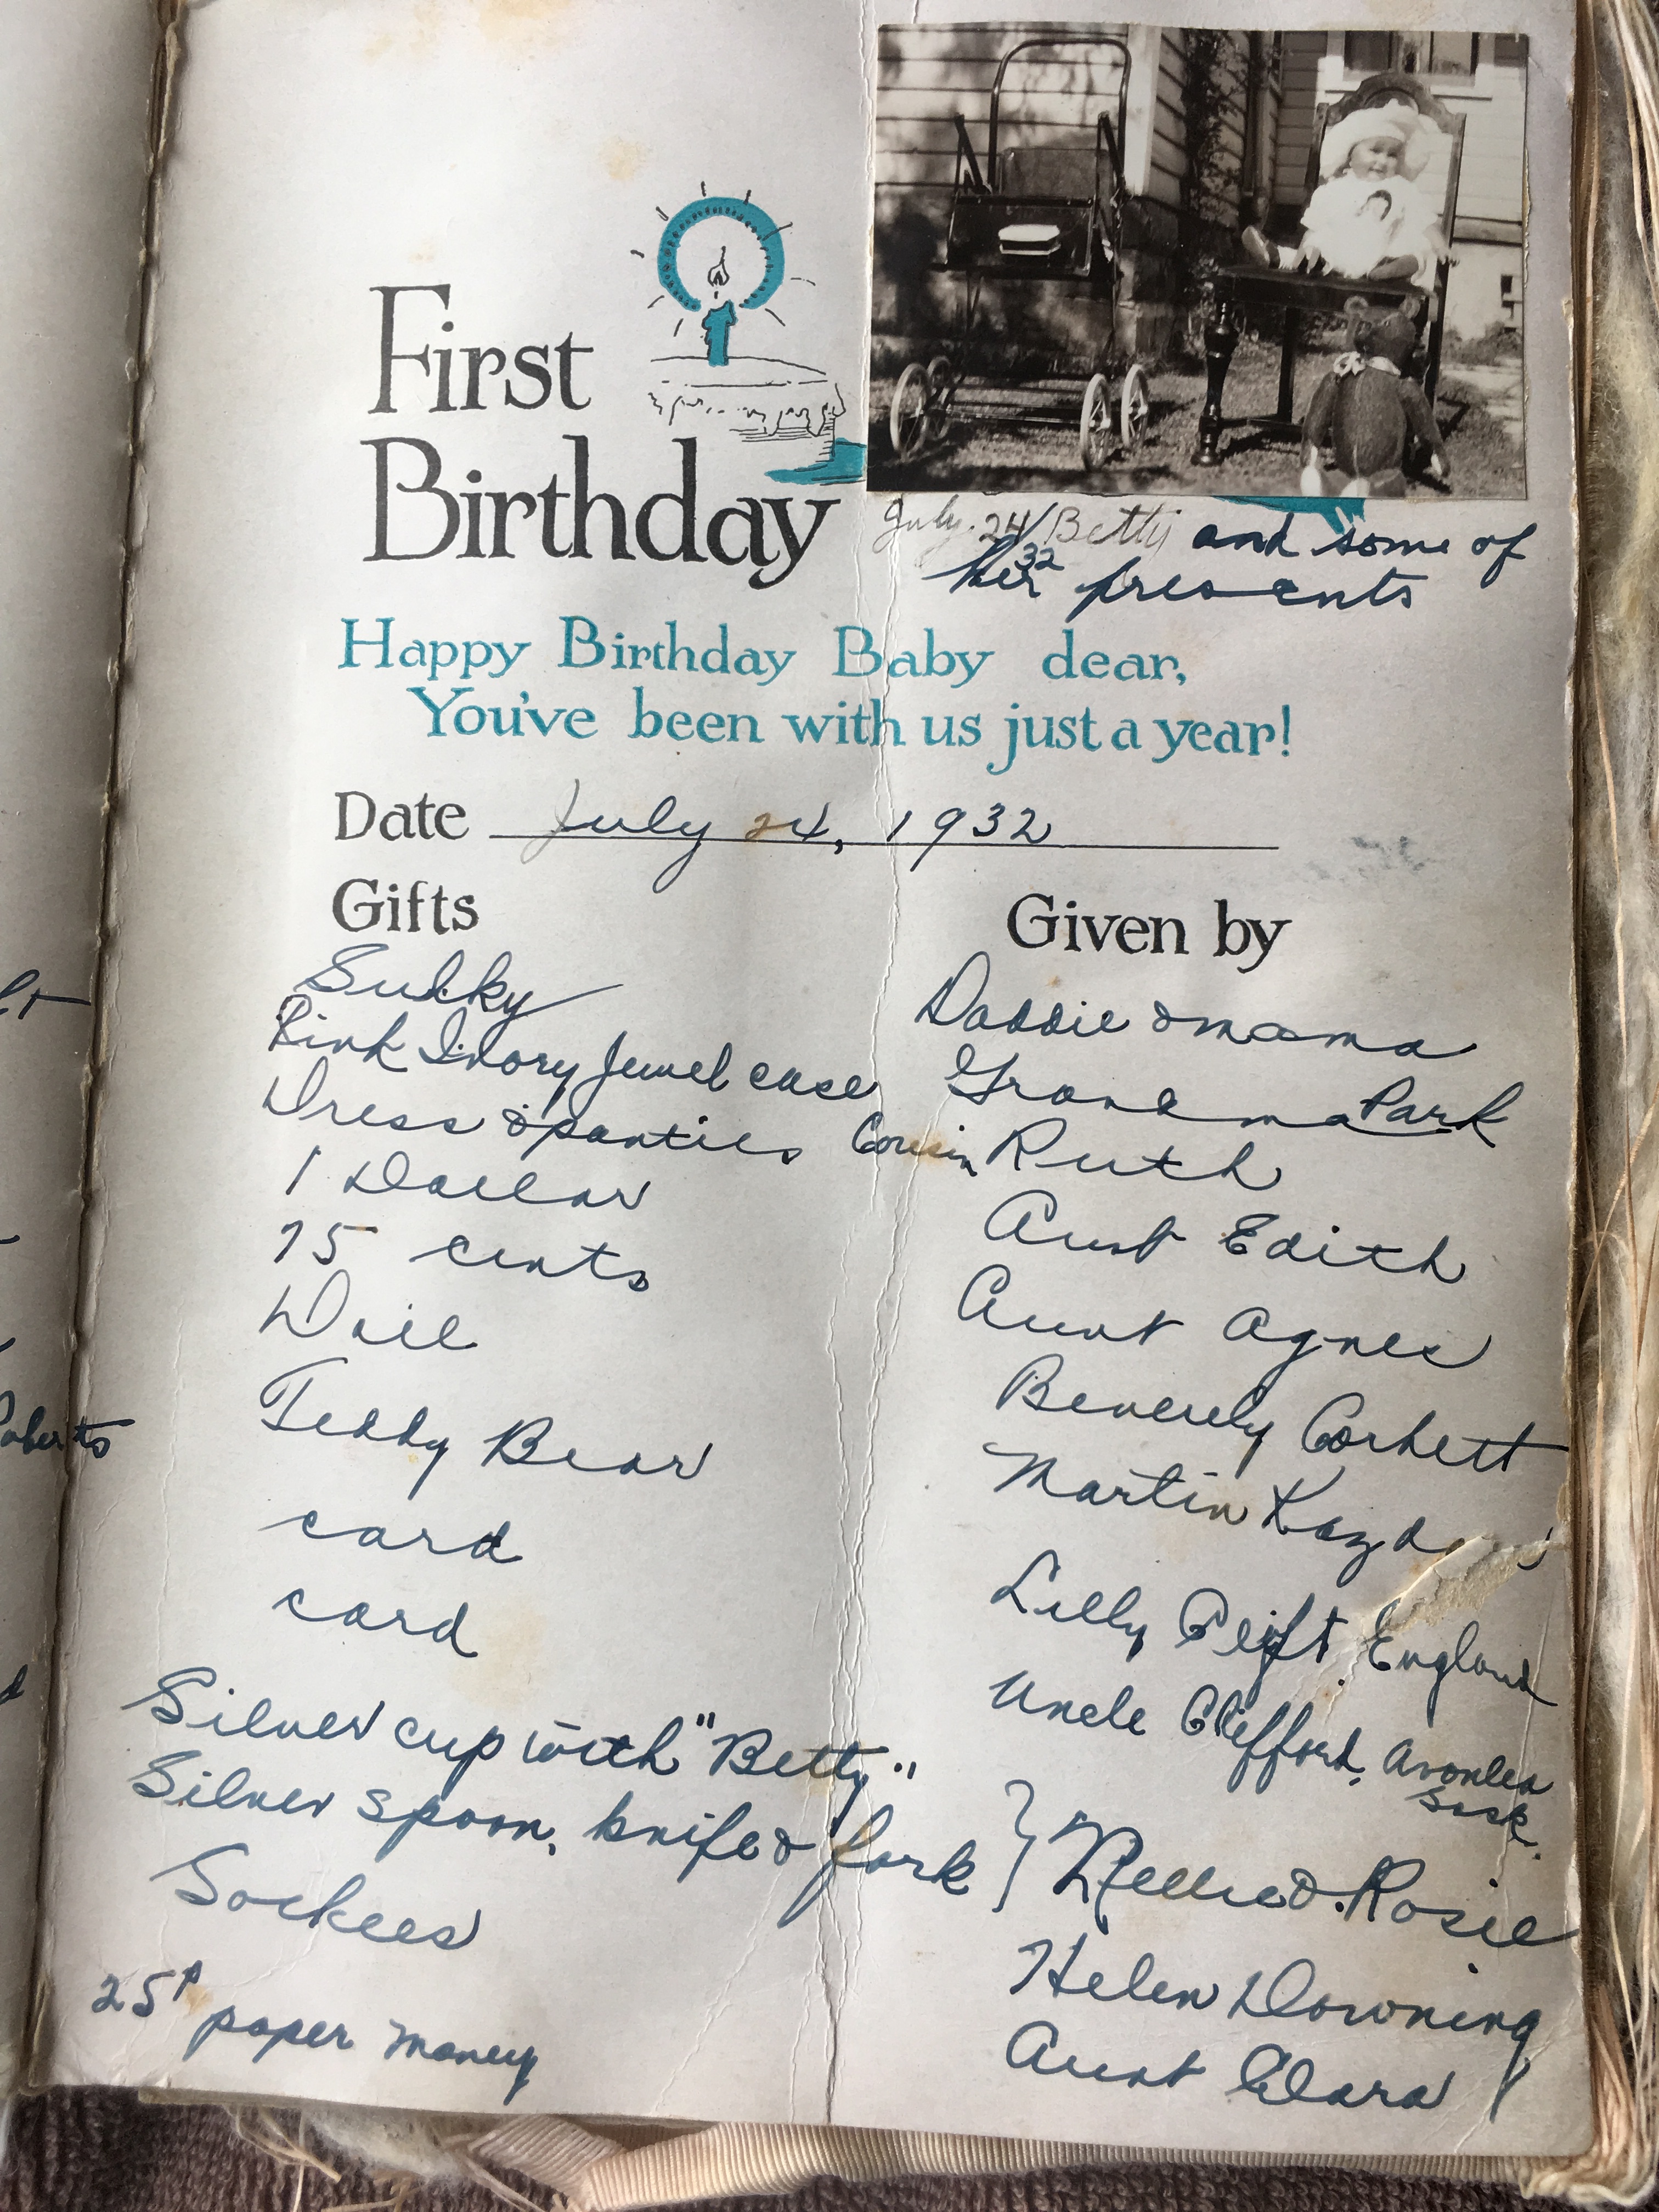 First
Birthday
July. 24/ Betty and some of
32
her presents
Happy Birthday Baby dear,
You've been with us just a year!
Date July 24, 1932
Gifts Given by
Sulky Daddie & mama
Pink Ivory Jewel case Grandma Park
Dress & panties Cousin Ruth
1 Dollar Aunt Edith
75 cents Aunt Agnes
Doll Beverely Corbett
Teddy Bear Martin
card Lilly England
card Uncle Clifford, Avonlea
Sask.
Silver cup with "Betty"
Silver spoon, knife & fork } Nellie & Rosie
Sockees Helen Downing
25¢ paper money Aunt Clara